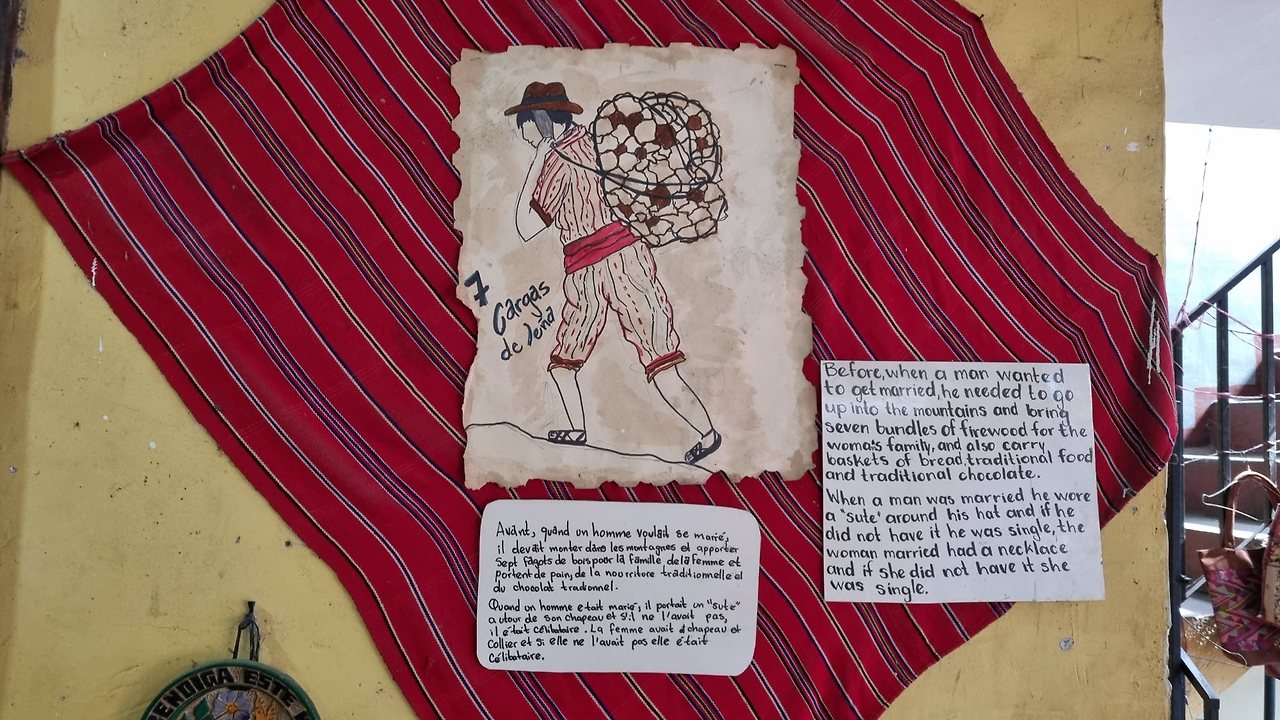 7
Cargas
de leña
Before, when a man wanted
to get married, he needed to go
up into the mountains and bring
seven bundles of firewood for the
woma's family, and also carry
baskets of bread, traditional food
and traditional chocolate.
When a man was married he wore
a "sute" around his hat and if he
did not have it he was single, the
woman married had a necklace
and if she did not have it she
was single.
Avant, quand un homme voulait se marié,
il devait monter dans les montagnes et apporter
Sept fagots de bois pour la famille de la femme et
portent de pain, de la nourriture traditionnelle et
du chocolat tradionnel.
Quand un homme etait marié, il portait un "sute"
autour de son chapeau et s'il ne l'avait pas,
il était célibataire. La femme avait chapeau et
collier et si elle ne l'avait pas elle était
célibataire.
ENDIGA ESTE